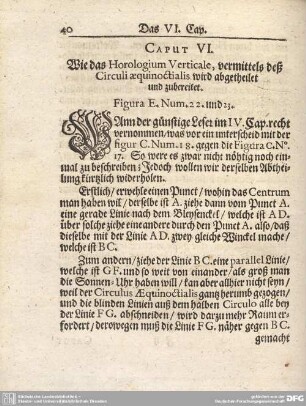 40 Das VI. Cap.
CAPUT VI.
Wie das Horologium Verticale, vermittels deß
Circuli æquinoctialis wird abgetheilet
und zubereitet.
Figura E. Num. 22. und 23.
WAnn der günstige Leser im IV. Cap. recht
vernommen/ was vor ein unterscheid mit der
figur C. Num. 18. gegen die Figura C. Nº.
17. So were es zwar nicht nöhtig noch ein-
mal zu beschreiben; Jedoch wollen wir derselben Abthei-
lung kürtzlich widerholen.
Erstlich/ erwehle einen Punct/ wohin das Centrum
man haben wil/ derselbe ist A. ziehe dann vom Punct A.
eine gerade Linie nach dem Bleysenckel/ welche ist AD.
über solche ziehe eine andere durch den Punct A. also/ daß
dieselbe mit der Linie AD. zwey gleiche Winckel mache/
welche ist BC.
Zum andern/ ziehe der Linie BC. eine parallel Linie/
welche ist GF. und so weit von einander/ als groß man
die Sonnen-Uhr haben will/ kan aber allhier nicht seyn/
weil der Circulus Æquinoctialis gantz herumb gezogen/
und die blinden Linien auß dem halben Circulo alle bey
der Linie FG. abschneiden/ wird darzu mehr Raum er-
fordert/ derowegen muß die Linie FG. näher gegen BC.
gemacht